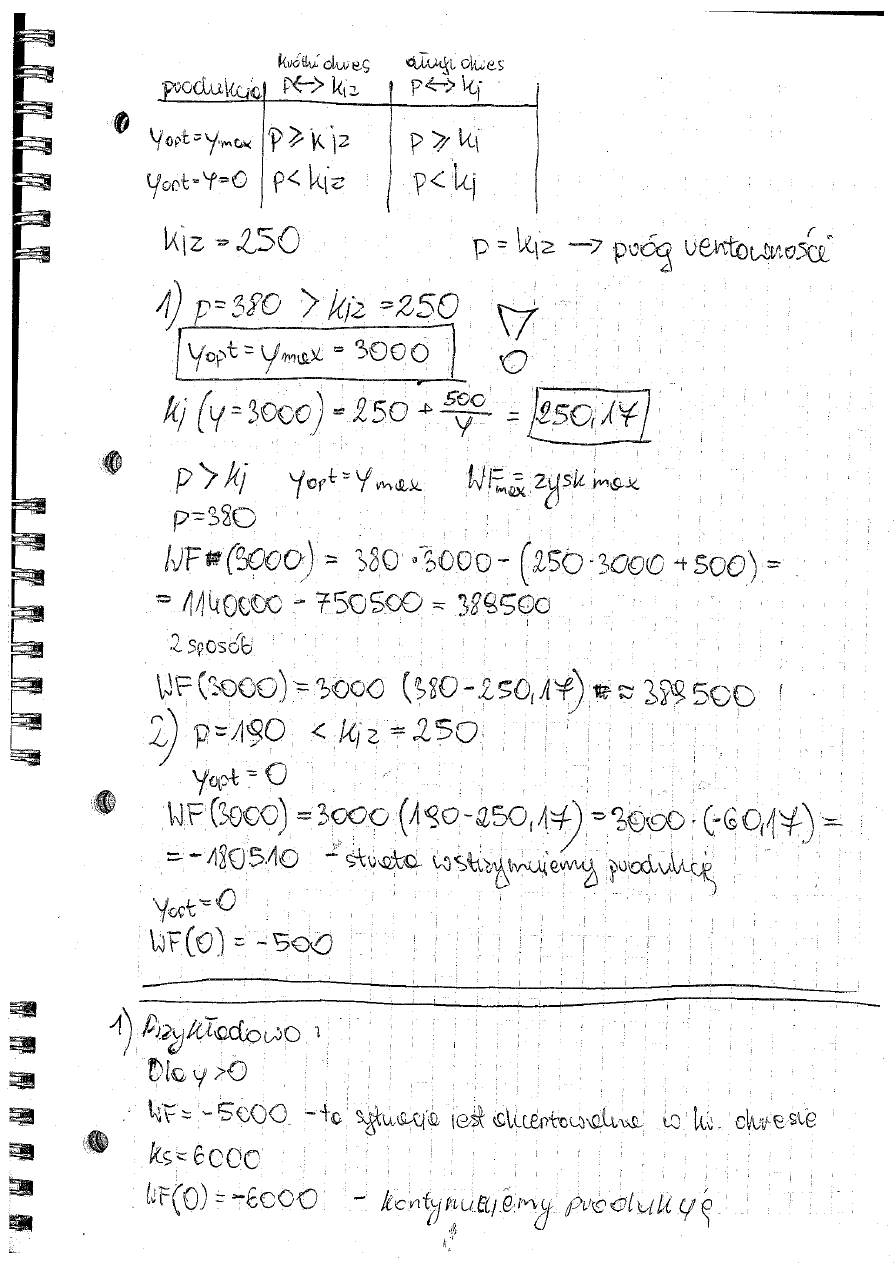 krótki okres długi okres
produkcja p↔kjz p↔kj
yopt=ymax p⩾kjz p⩾kj
yopt=y=0 p<kjz p<kj
kjz = 250 p = kjz → próg rentowności
1) p=380 > kjz = 250
yopt = ymax = 3000
kj (y=3000) = 250 + 500/y = 250,17
p > kj yopt = ymax WFmax = zysk max
p=380
WF (3000) = 380 · 3000 - (250·3000 + 500) =
= 1140000 - 750500 = 389500
2 sposób
WF(3000) = 3000 (380-250,17) ≈ 389500
2) p=190 < kjz = 250
yopt = 0
WF(3000) = 3000 (190-250,17) = 3000·(-60,17) =
= -180510 - strata wstrzymujemy produkcję
yopt=0
WF(0) = -500
1) Przykładowo:
Dla y>0
WF = -5000 - ta sytuacja jest akceptowalna w kr. okresie
ks=6000
WF(0) = -6000 - kontynuujemy produkcję